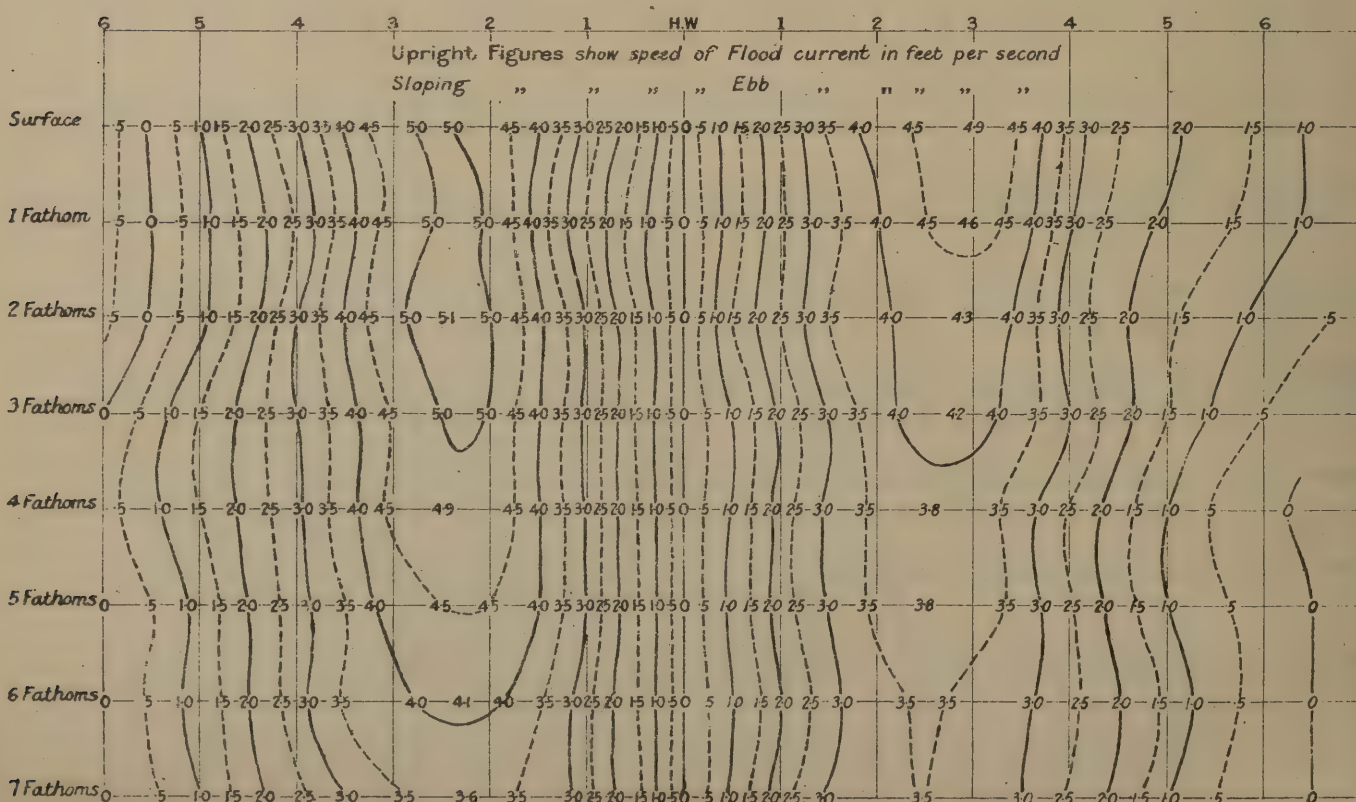 6 5 4 3 2 1 H.W 1 2 3 4 5 6
Upright Figures show speed of Flood current in feet per second
Sloping " " " " Ebb " " " " "
Surface ·5 0 ·5 1·0 1·5 2·0 2·5 3·0 3·5 4·0 4·5 5·0 5·0 4·5 4·0 3·5 3·0 2·5 2·0 1·5 1·0 ·5 0 ·5 1·0 1·5 2·0 2·5 3·0 3·5 4·0 4·5 4·9 4·5 4·0 3·5 3·0 2·5 2·0 1·5 1·0
1 Fathom ·5 0 ·5 1·0 1·5 2·0 2·5 3·0 3·5 4·0 4·5 5·0 5·0 4·5 4·0 3·5 3·0 2·5 2·0 1·5 1·0 ·5 0 ·5 1·0 1·5 2·0 2·5 3·0 3·5 4·0 4·5 4·6 4·5 4·0 3·5 3·0 2·5 2·0 1·5 1·0
2 Fathoms ·5 0 ·5 1·0 1·5 2·0 2·5 3·0 3·5 4·0 4·5 5·0 5·1 5·0 4·5 4·0 3·5 3·0 2·5 2·0 1·5 1·0 ·5 0 ·5 1·0 1·5 2·0 2·5 3·0 3·5 4·0 4·3 4·0 3·5 3·0 2·5 2·0 1·5 1·0 ·5
3 Fathoms 0 ·5 1·0 1·5 2·0 2·5 3·0 3·5 4·0 4·5 5·0 5·0 4·5 4·0 3·5 3·0 2·5 2·0 1·5 1·0 ·5 0 ·5 1·0 1·5 2·0 2·5 3·0 3·5 4·0 4·2 4·0 3·5 3·0 2·5 2·0 1·5 1·0 ·5
4 Fathoms ·5 1·0 1·5 2·0 2·5 3·0 3·5 4·0 4·5 4·9 4·5 4·0 3·5 3·0 2·5 2·0 1·5 1·0 ·5 0 ·5 1·0 1·5 2·0 2·5 3·0 3·5 3·8 3·5 3·0 2·5 2·0 1·5 1·0 ·5 0
5 Fathoms 0 ·5 1·0 1·5 2·0 2·5 3·0 3·5 4·0 4·5 4·5 4·0 3·5 3·0 2·5 2·0 1·5 1·0 ·5 0 ·5 1·0 1·5 2·0 2·5 3·0 3·5 3·8 3·5 3·0 2·5 2·0 1·5 1·0 ·5 0
6 Fathoms 0 ·5 1·0 1·5 2·0 2·5 3·0 3·5 4·0 4·1 4·0 3·5 3·0 2·5 2·0 1·5 1·0 ·5 0 ·5 1·0 1·5 2·0 2·5 3·0 3·5 3·5 3·0 2·5 2·0 1·5 1·0 ·5 0
7 Fathoms 0 ·5 1·0 1·5 2·0 2·5 3·0 3·5 3·6 3·5 3·0 2·5 2·0 1·5 1·0 ·5 0 ·5 1·0 1·5 2·0 2·5 3·0 3·5 3·0 2·5 2·0 1·5 1·0 ·5 0